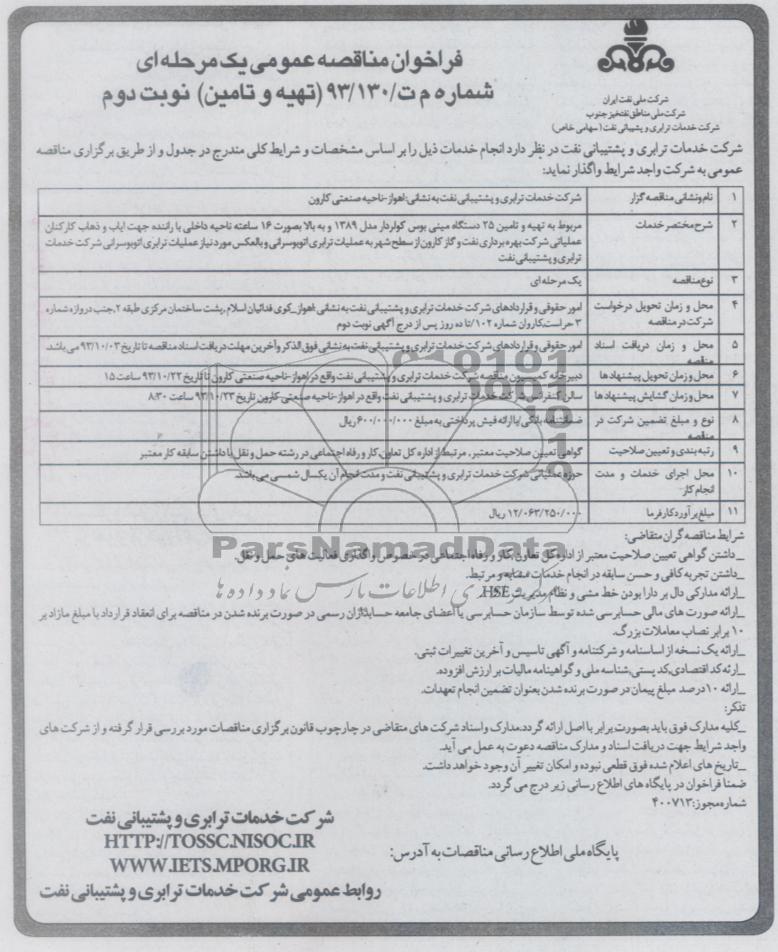 شرکت ملی نفت ایران
شرکت ملی مناطق نفتخیز جنوب
شرکت خدمات ترابری و پشتیبانی نفت (سهامی خاص)
فراخوان مناقصه عمومی یک مرحله ای
شماره م ت/۹۳/۱۳۰ (تهیه و تامین) نوبت دوم
شرکت خدمات ترابری و پشتیبانی نفت در نظر دارد انجام خدمات ذیل را بر اساس مشخصات و شرایط کلی مندرج در جدول و از طریق برگزاری مناقصه
عمومی به شرکت واجد شرایط واگذار نماید:
۱ نام ونشانی مناقصه گزار شرکت خدمات ترابری و پشتیبانی نفت به نشانی: اهواز-ناحیه صنعتی کارون
۲ شرح مختصر خدمات مربوط به تهیه و تامین ۲۵ دستگاه مینی بوس کولردار مدل ۱۳۸۹ و به بالا بصورت ۱۶ ساعته ناحیه داخلی با راننده جهت ایاب و ذهاب کارکنان
عملیاتی شرکت بهره برداری نفت و گاز کارون از سطح شهر به عملیات ترابری اتوبوسرانی و بالعکس مورد نیاز عملیات ترابری اتوبوسرانی شرکت خدمات
ترابری و پشتیبانی نفت
۳ نوع مناقصه یک مرحله ای
۴ محل و زمان تحویل درخواست امور حقوقی و قراردادهای شرکت خدمات ترابری و پشتیبانی نفت به نشانی: اهواز_کوی فدائیان اسلام، پشت ساختمان مرکزی طبقه ۲، جنب دروازه شماره
شرکت در مناقصه ۳ حراست، کاروان شماره ۱۰۲/تا ده روز پس از درج آگهی نوبت دوم
۵ محل و زمان دریافت اسناد امور حقوقی و قراردادهای شرکت خدمات ترابری و پشتیبانی نفت به نشانی فوق الذکر و آخرین مهلت دریافت اسناد مناقصه تا تاریخ ۹۳/۱۰/۰۳ می باشد.
مناقصه
۶ محل وزمان تحویل پیشنهادها دبیرخانه کمیسیون مناقصه شرکت خدمات ترابری و پشتیبانی نفت واقع در اهواز-ناحیه صنعتی کارون تا تاریخ ۹۳/۱۰/۲۲ ساعت ۱۵
۷ محل وزمان گشایش پیشنهادها سالن کنفرانس شرکت خدمات ترابری و پشتیبانی نفت واقع در اهواز-ناحیه صنعتی کارون تاریخ ۹۳/۱۰/۲۳ ساعت ۸:۳۰
۸ نوع و مبلغ تضمین شرکت در ضمانتنامه بانکی یا ارائه فیش پرداختی به مبلغ ۶۰۰/۰۰۰/۰۰۰ ریال
مناقصه
۹ رتبه بندی و تعیین صلاحیت گواهی تعیین صلاحیت معتبر، مرتبط از اداره کل تعاون، کار و رفاه اجتماعی در رشته حمل و نقل با داشتن سابقه کار معتبر
۱۰ محل اجرای خدمات و مدت حوزه عملیاتی شرکت خدمات ترابری و پشتیبانی نفت و مدت انجام آن یکسال شمسی می باشد.
انجام کار
۱۱ مبلغ برآورد کارفرما ۱۲/۰۶۳/۲۵۰/۰۰۰ ریال
شرایط مناقصه گران متقاضی:
_داشتن گواهی تعیین صلاحیت معتبر از اداره کل تعاون، کار و رفاه اجتماعی در خصوص واگذاری فعالیت های حمل و نقل.
_داشتن تجربه کافی و حسن سابقه در انجام خدمات مشابه و مرتبط.
_ارائه مدارکی دال بر دارا بودن خط مشی و نظام مدیریت HSE
_ارائه صورت های مالی حسابرسی شده توسط سازمان حسابرسی یا اعضای جامعه حسابداران رسمی در صورت برنده شدن در مناقصه برای انعقاد قرارداد با مبلغ مازاد بر
۱۰ برابر نصاب معاملات بزرگ.
_ارائه یک نسخه از اساسنامه و شرکتنامه و آگهی تاسیس و آخرین تغییرات ثبتی.
_ارئه کد اقتصادی، کد پستی، شناسه ملی و گواهینامه مالیات بر ارزش افزوده.
_ارائه ۱۰درصد مبلغ پیمان در صورت برنده شدن بعنوان تضمین انجام تعهدات.
تذکر:
_کلیه مدارک فوق باید بصورت برابر با اصل ارائه گردد. مدارک واسناد شرکت های متقاضی در چارچوب قانون برگزاری مناقصات مورد بررسی قرار گرفته و از شرکت های
واجد شرایط جهت دریافت اسناد و مدارک مناقصه دعوت به عمل می آید.
_تاریخ های اعلام شده فوق قطعی نبوده و امکان تغییر آن وجود خواهد داشت.
ضمنا فراخوان در پایگاه های اطلاع رسانی زیر درج می گردد.
شماره مجوز: ۴۰۰۷۱۳
شرکت خدمات ترابری و پشتیبانی نفت
HTTP://TOSSC.NISOC.IR
پایگاه ملی اطلاع رسانی مناقصات به آدرس:
WWW.IETS.MPORG.IR
روابط عمومی شرکت خدمات ترابری و پشتیبانی نفت
ParsNamadData